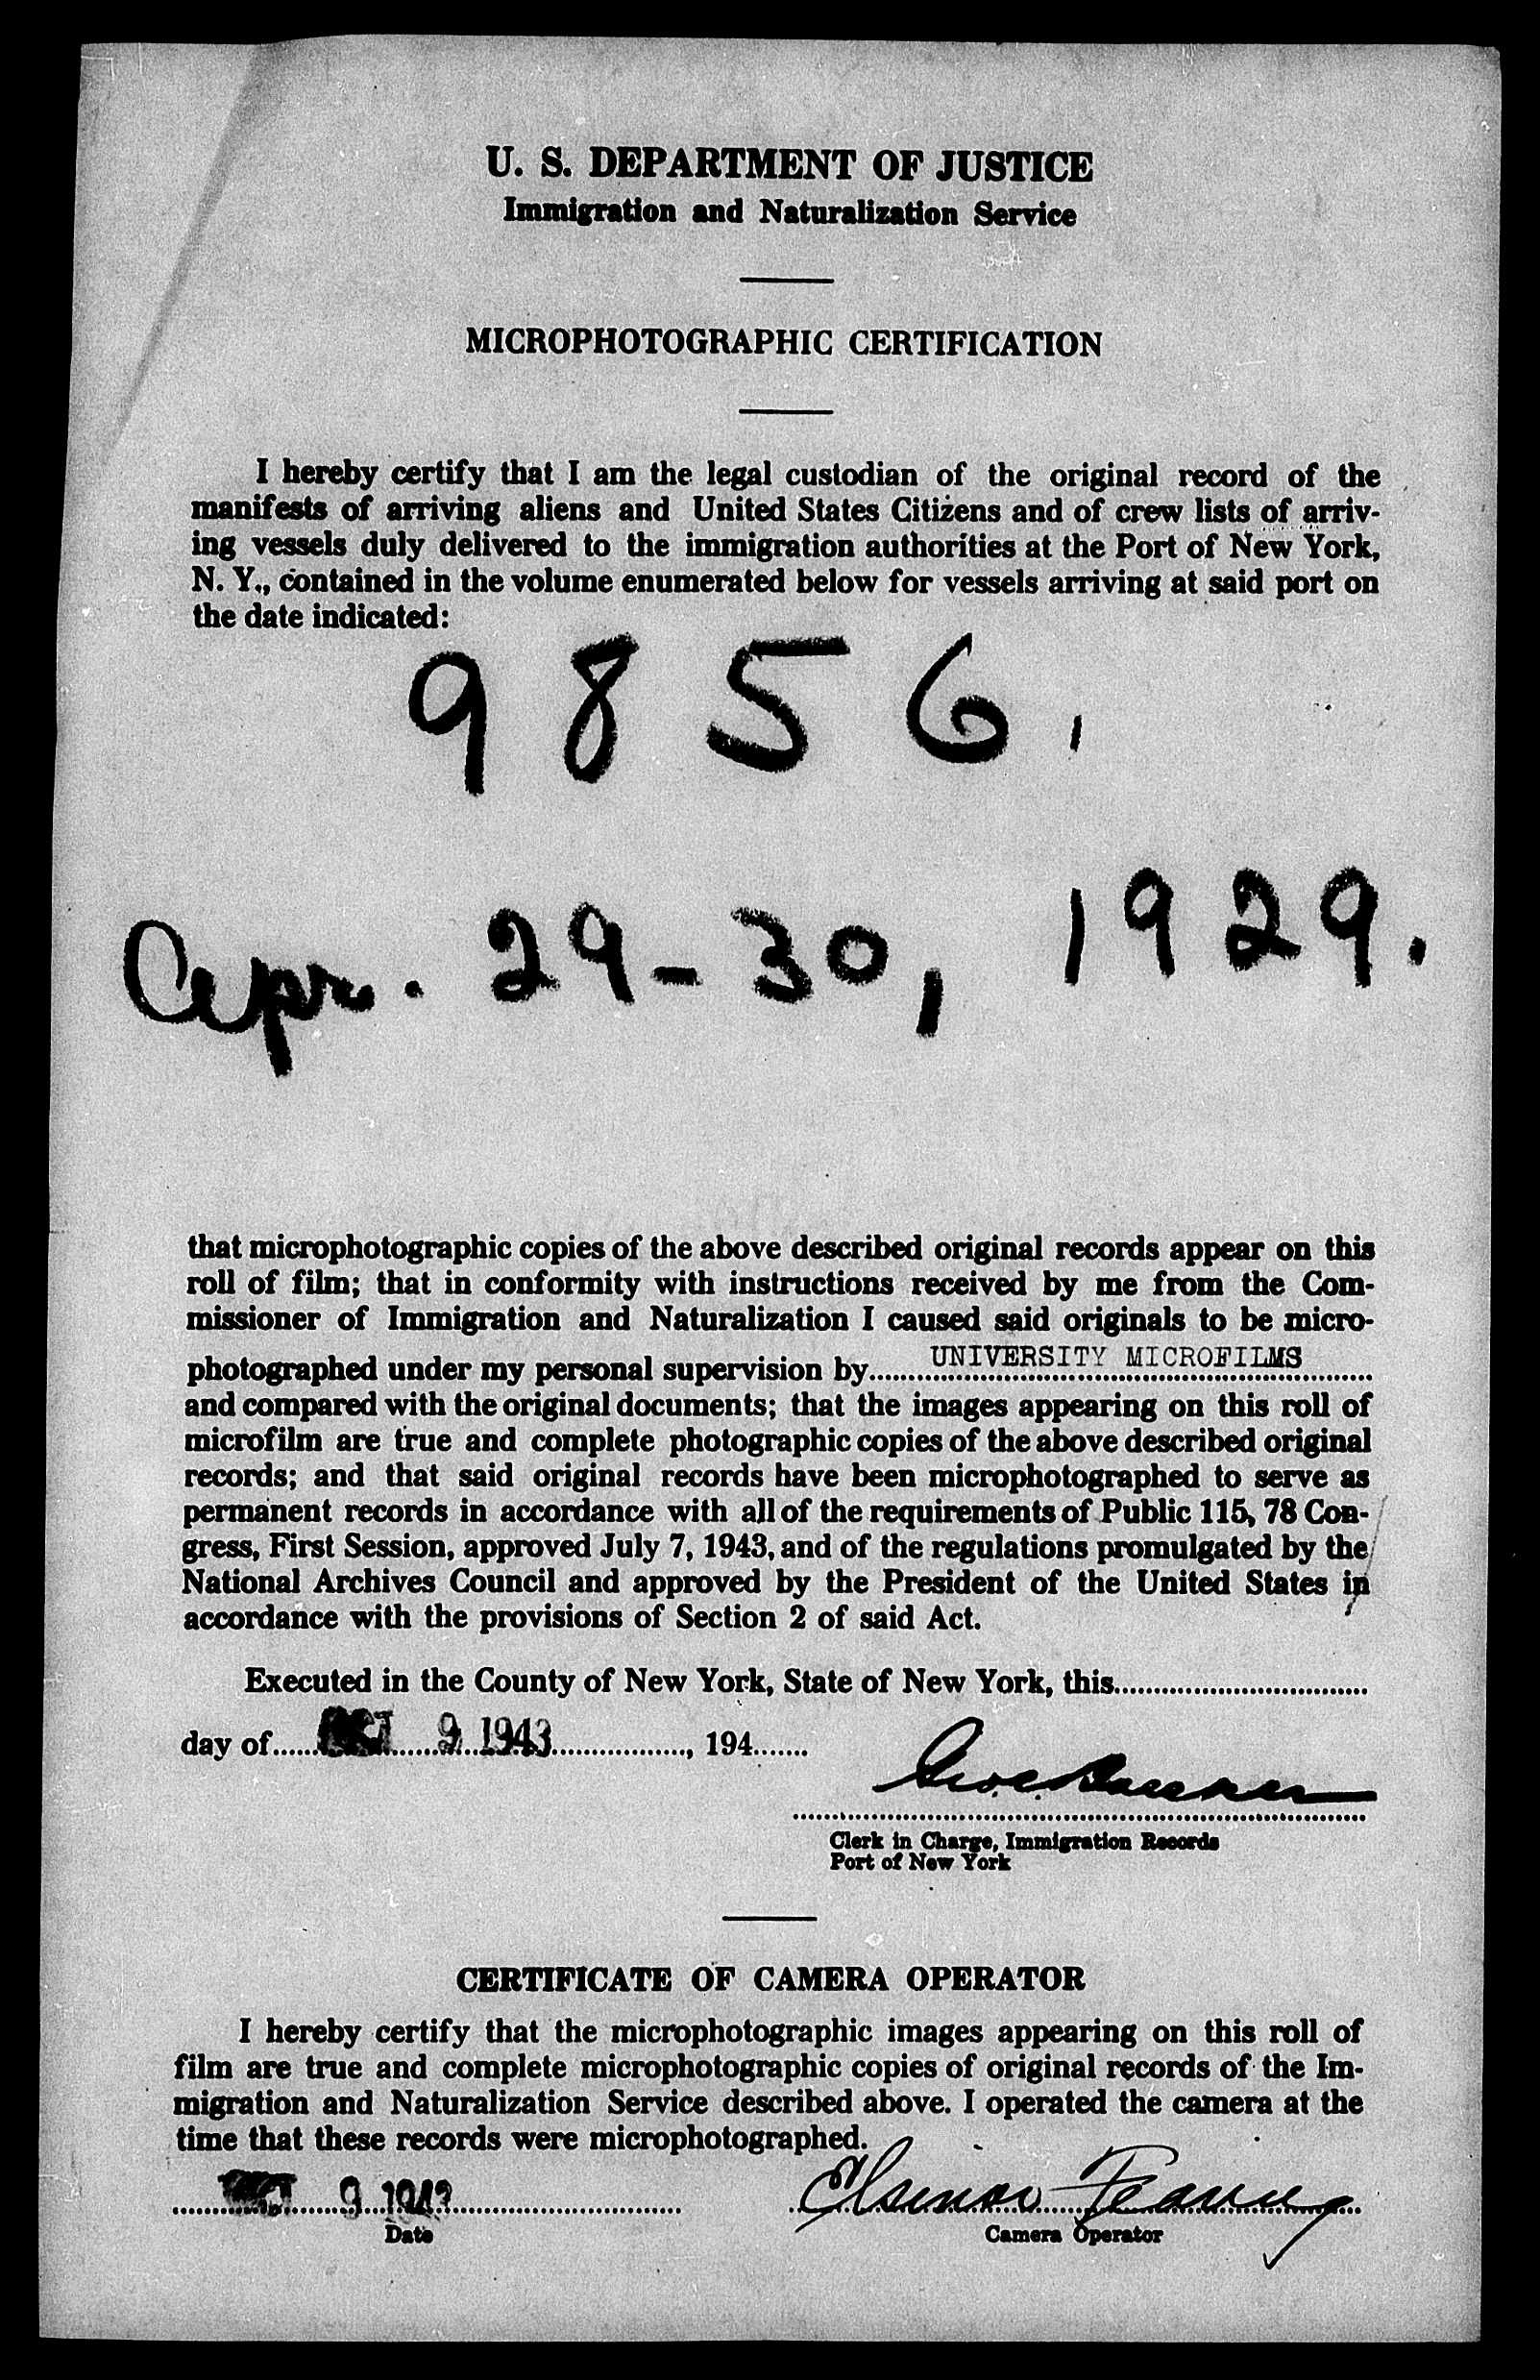 U. S. DEPARTMENT OF JUSTICE
Immigration and Naturalization Service
MICROPHOTOGRAPHIC CERTIFICATION
I hereby certify that I am the legal custodian of the original record of the
manifests of arriving aliens and United States Citizens and of crew lists of arriv-
ing vessels duly delivered to the immigration authorities at the Port of New York,
N. Y., contained in the volume enumerated below for vessels arriving at said port on
the date indicated:
9856,
Apr. 29-30, 1929.
that microphotographic copies of the above described original records appear on this
roll of film; that in conformity with instructions received by me from the Com-
missioner of Immigration and Naturalization I caused said originals to be micro-
photographed under my personal supervision by UNIVERSITY MICROFILMS
and compared with the original documents; that the images appearing on this roll of
microfilm are true and complete photographic copies of the above described original
records; and that said original records have been microphotographed to serve as
permanent records in accordance with all of the requirements of Public 115, 78 Con-
gress, First Session, approved July 7, 1943, and of the regulations promulgated by the
National Archives Council and approved by the President of the United States in
accordance with the provisions of Section 2 of said Act.
Executed in the County of New York, State of New York, this
day of OCT 9 1943, 194
Clerk in Charge, Immigration Records
Port of New York
CERTIFICATE OF CAMERA OPERATOR
I hereby certify that the microphotographic images appearing on this roll of
film are true and complete microphotographic copies of original records of the Im-
migration and Naturalization Service described above. I operated the camera at the
time that these records were microphotographed.
9 1943
Date
Camera Operator